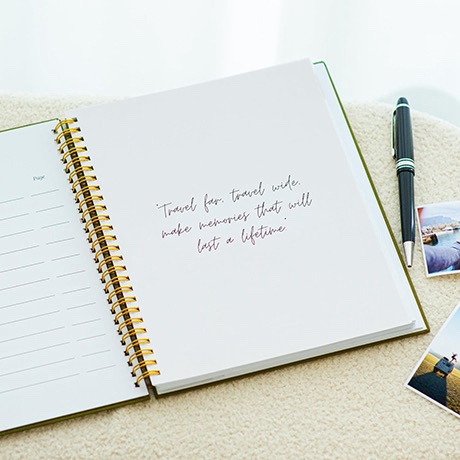 Page
'Travel far, travel wide,
make memories that will
last a lifetime'